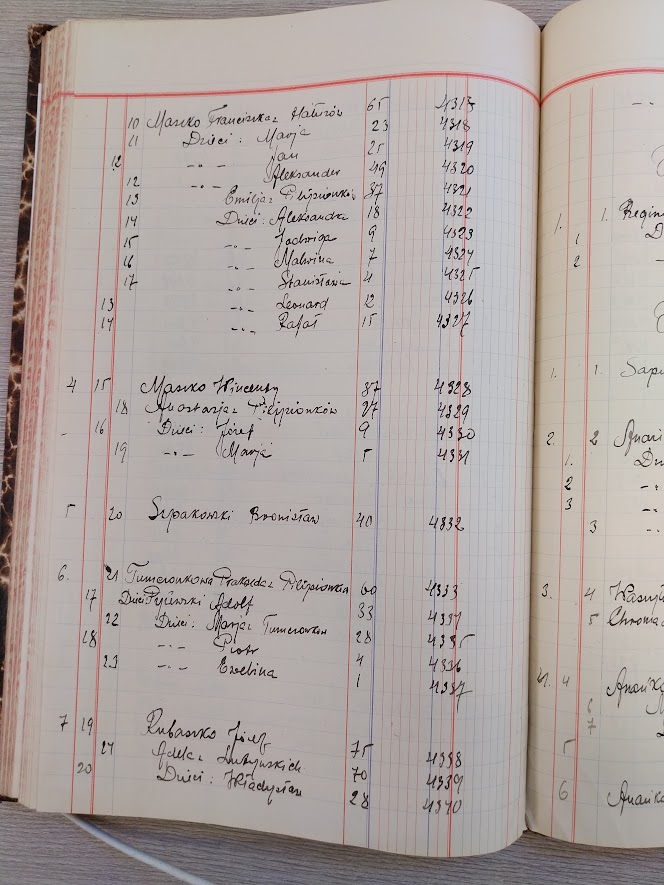 10 Maszko Franciszka z Haturów 65 4317
11 Dzieci: Marja 23 4318
12 -"- Jan 25 4319
12 -"- Aleksander 49 4320
13 Emilja z Pilipionków 37 4321
14 Dzieci: Aleksandra 18 4322
15 -"- Jadwiga 9 4323
16 -"- Malwina 7 4324
17 -"- Stanisława 4 4325
13 -"- Leonard 12 4326
14 -"- Rafał 15 4327
4 15 Maszko Wincenty 37 4328
18 Anastazja z Pilipionków 27 4329
16 Dzieci: Józef 9 4330
19 -"- Marja 5 4331
5 20 Szpakowski Bronisław 40 4332
6. 21 Tumeronkowa Prakseda z Pilipionków 60 4333
17 Dzieci Adolf 33 4334
22 Dzieci: Marja z Tumeronków 28 4335
18 -"- Piotr 4 4336
23 -"- Ewelina 1 4337
7 19 Rubaszko Józef 75 4338
24 Adela z 70 4339
20 Dzieci: Władysław 28 4340
1. 1.
1
2
1. 1.
2. 2
1.
2
3
3
3. 4
5
4. 4
6
7
5
6